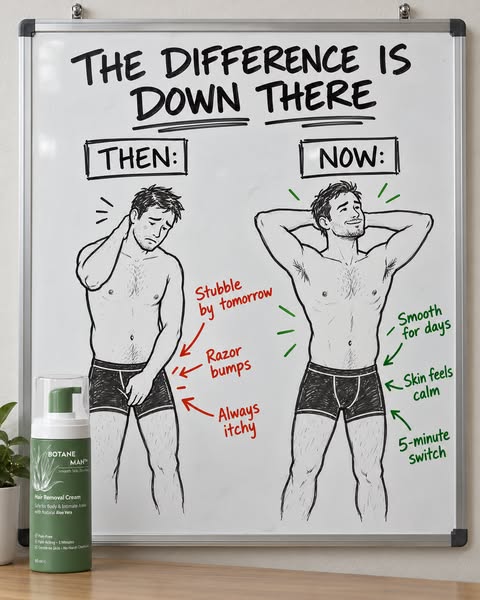 THE DIFFERENCE IS
DOWN THERE
THEN:
NOW:
Stubble
by tomorrow
Razor
bumps
Always
itchy
Smooth
for days
Skin feels
calm
5-minute
switch
BOTANE
MAN
Hair Removal Cream
with Natural Aloe Vera